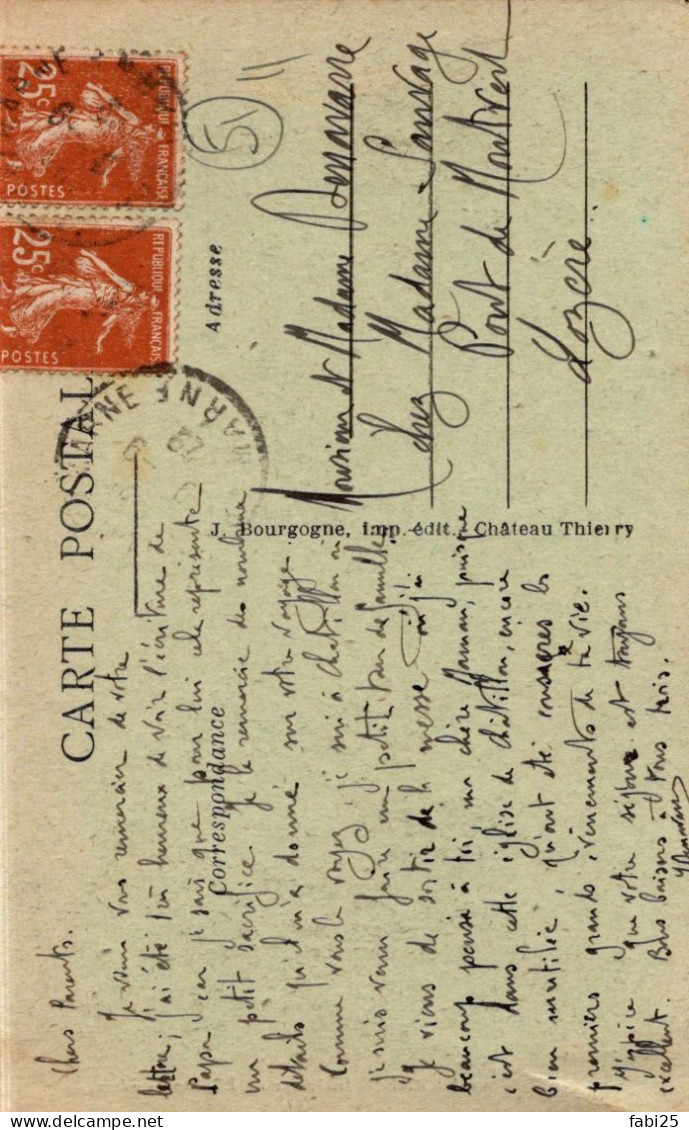 CARTE POSTALE
Correspondance
Adresse
J. Bourgogne, imp.-édit., Château Thierry
25c
REPUBLIQUE FRANÇAISE
POSTES
25c
REPUBLIQUE FRANÇAISE
POSTES
MARNE
MARNE
51
11
Monsieur et Madame
chez Madame Sauvage
Pont de Montvert
Lozère.
Chers Parents.
Je viens vous remercier de votre
lettre; j'ai été très heureux de voir l'écriture de
Papa car je sais que pour lui cela représente
un petit sacrifice. Je le remercie des nombreux
détails qu'il m'a donné sur votre voyage
Comme vous le voyez, je suis à Chatillon où
je suis venu faire un petit tour de famille.
Je viens de sortir de la messe où j'ai
beaucoup pensé à toi, ma chère Maman, puisque
c'est dans cette église de Chatillon, encore
bien mutilée, qu'ont été consacrés les
premiers grands évènements de ta vie.
J'espère que votre séjour est toujours
excellent. Bons baisers à tous trois.
fabi25